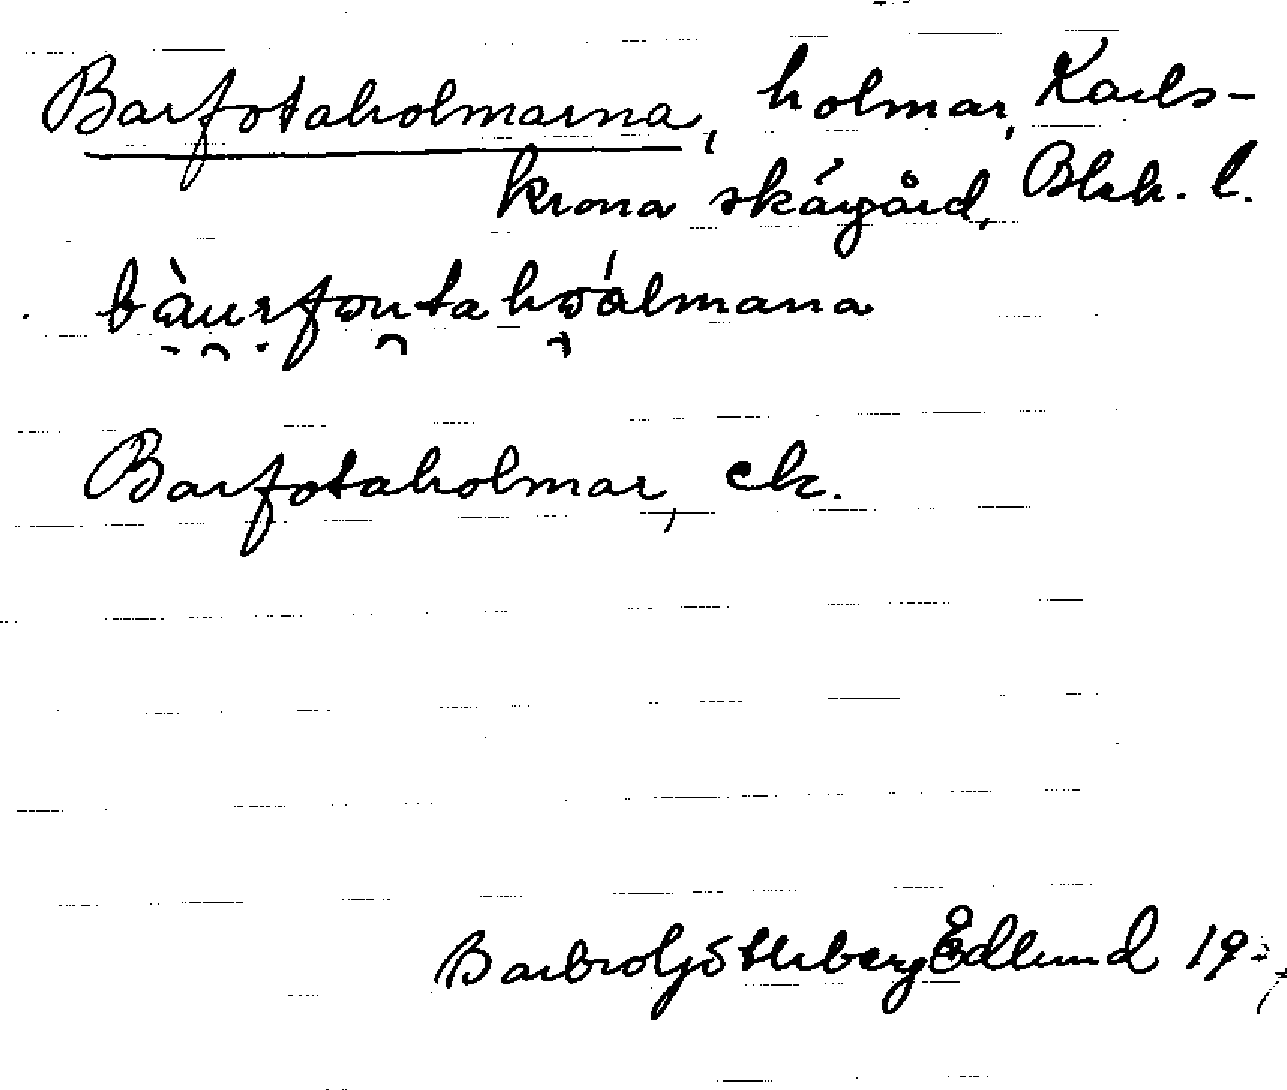 Barfotaholmarna, holmar, Karls-
krona skärgård, Blek. l.
bàu̯rfɔu̯tahɔ́almana
Barfotaholmar, ek.
Barbro Götleberg Edlund 19